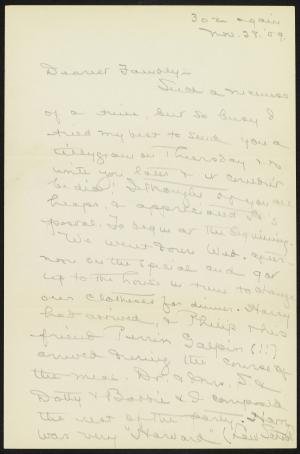 302 again
Nov. 28 '09.
Dearest Family -
Such a
of a time, but so busy I
tried my best to send you a
tellygram on Thursday & to
write you later & it couldn't
be did! I thought of you all
heaps, & appreciated
postal. To begin at the beginning.
We went down Wed. after-
noon on the special and got
up to the house in time to change
our clotheses for dinner. Harry
had arrived, & Philip & his
friend Perrin Galpin (!!!)
arrived during the course of
the meal. Dr. & Mrs.
Dotty & Bobbie & I composed
the rest of the party. Harry
was very "Harvard" (